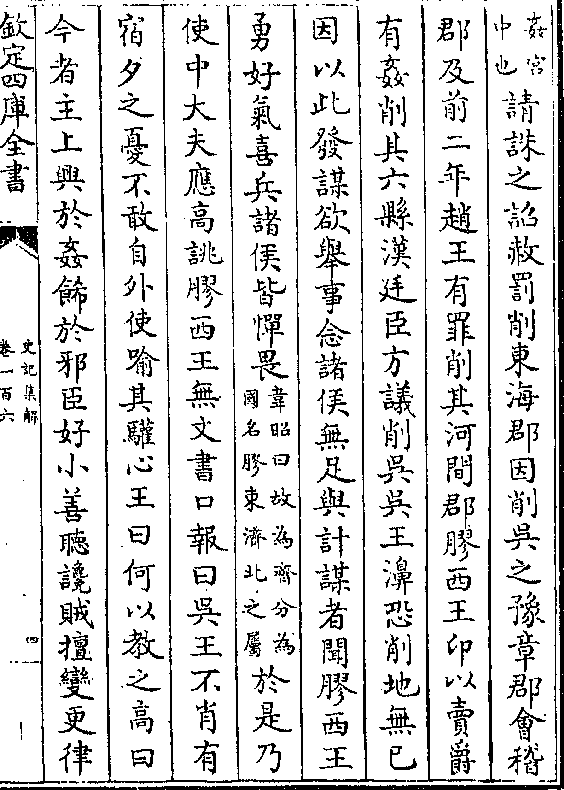 姦宮
中也
請誅之詔赦罰削東海郡因削吳之豫章郡會稽
郡及前二年趙王有罪削其河間郡膠西王卬以賣爵
有姦削其六縣漢廷臣方議削吳吳王濞恐削地無已
因以此發謀欲舉事念諸侯無足與計謀者聞膠西王
勇好氣喜兵諸侯皆憚畏
韋昭曰故為齊分為
國名膠東濟北之屬
於是乃
使中大夫應高誂膠西王無文書口報曰吳王不肖有
宿夕之憂不敢自外使喻其驩心王曰何以教之高曰
今者主上興於姦飾於邪臣好小善聽讒賊擅變更律
欽定四庫全書
史記集解
卷一百六
四